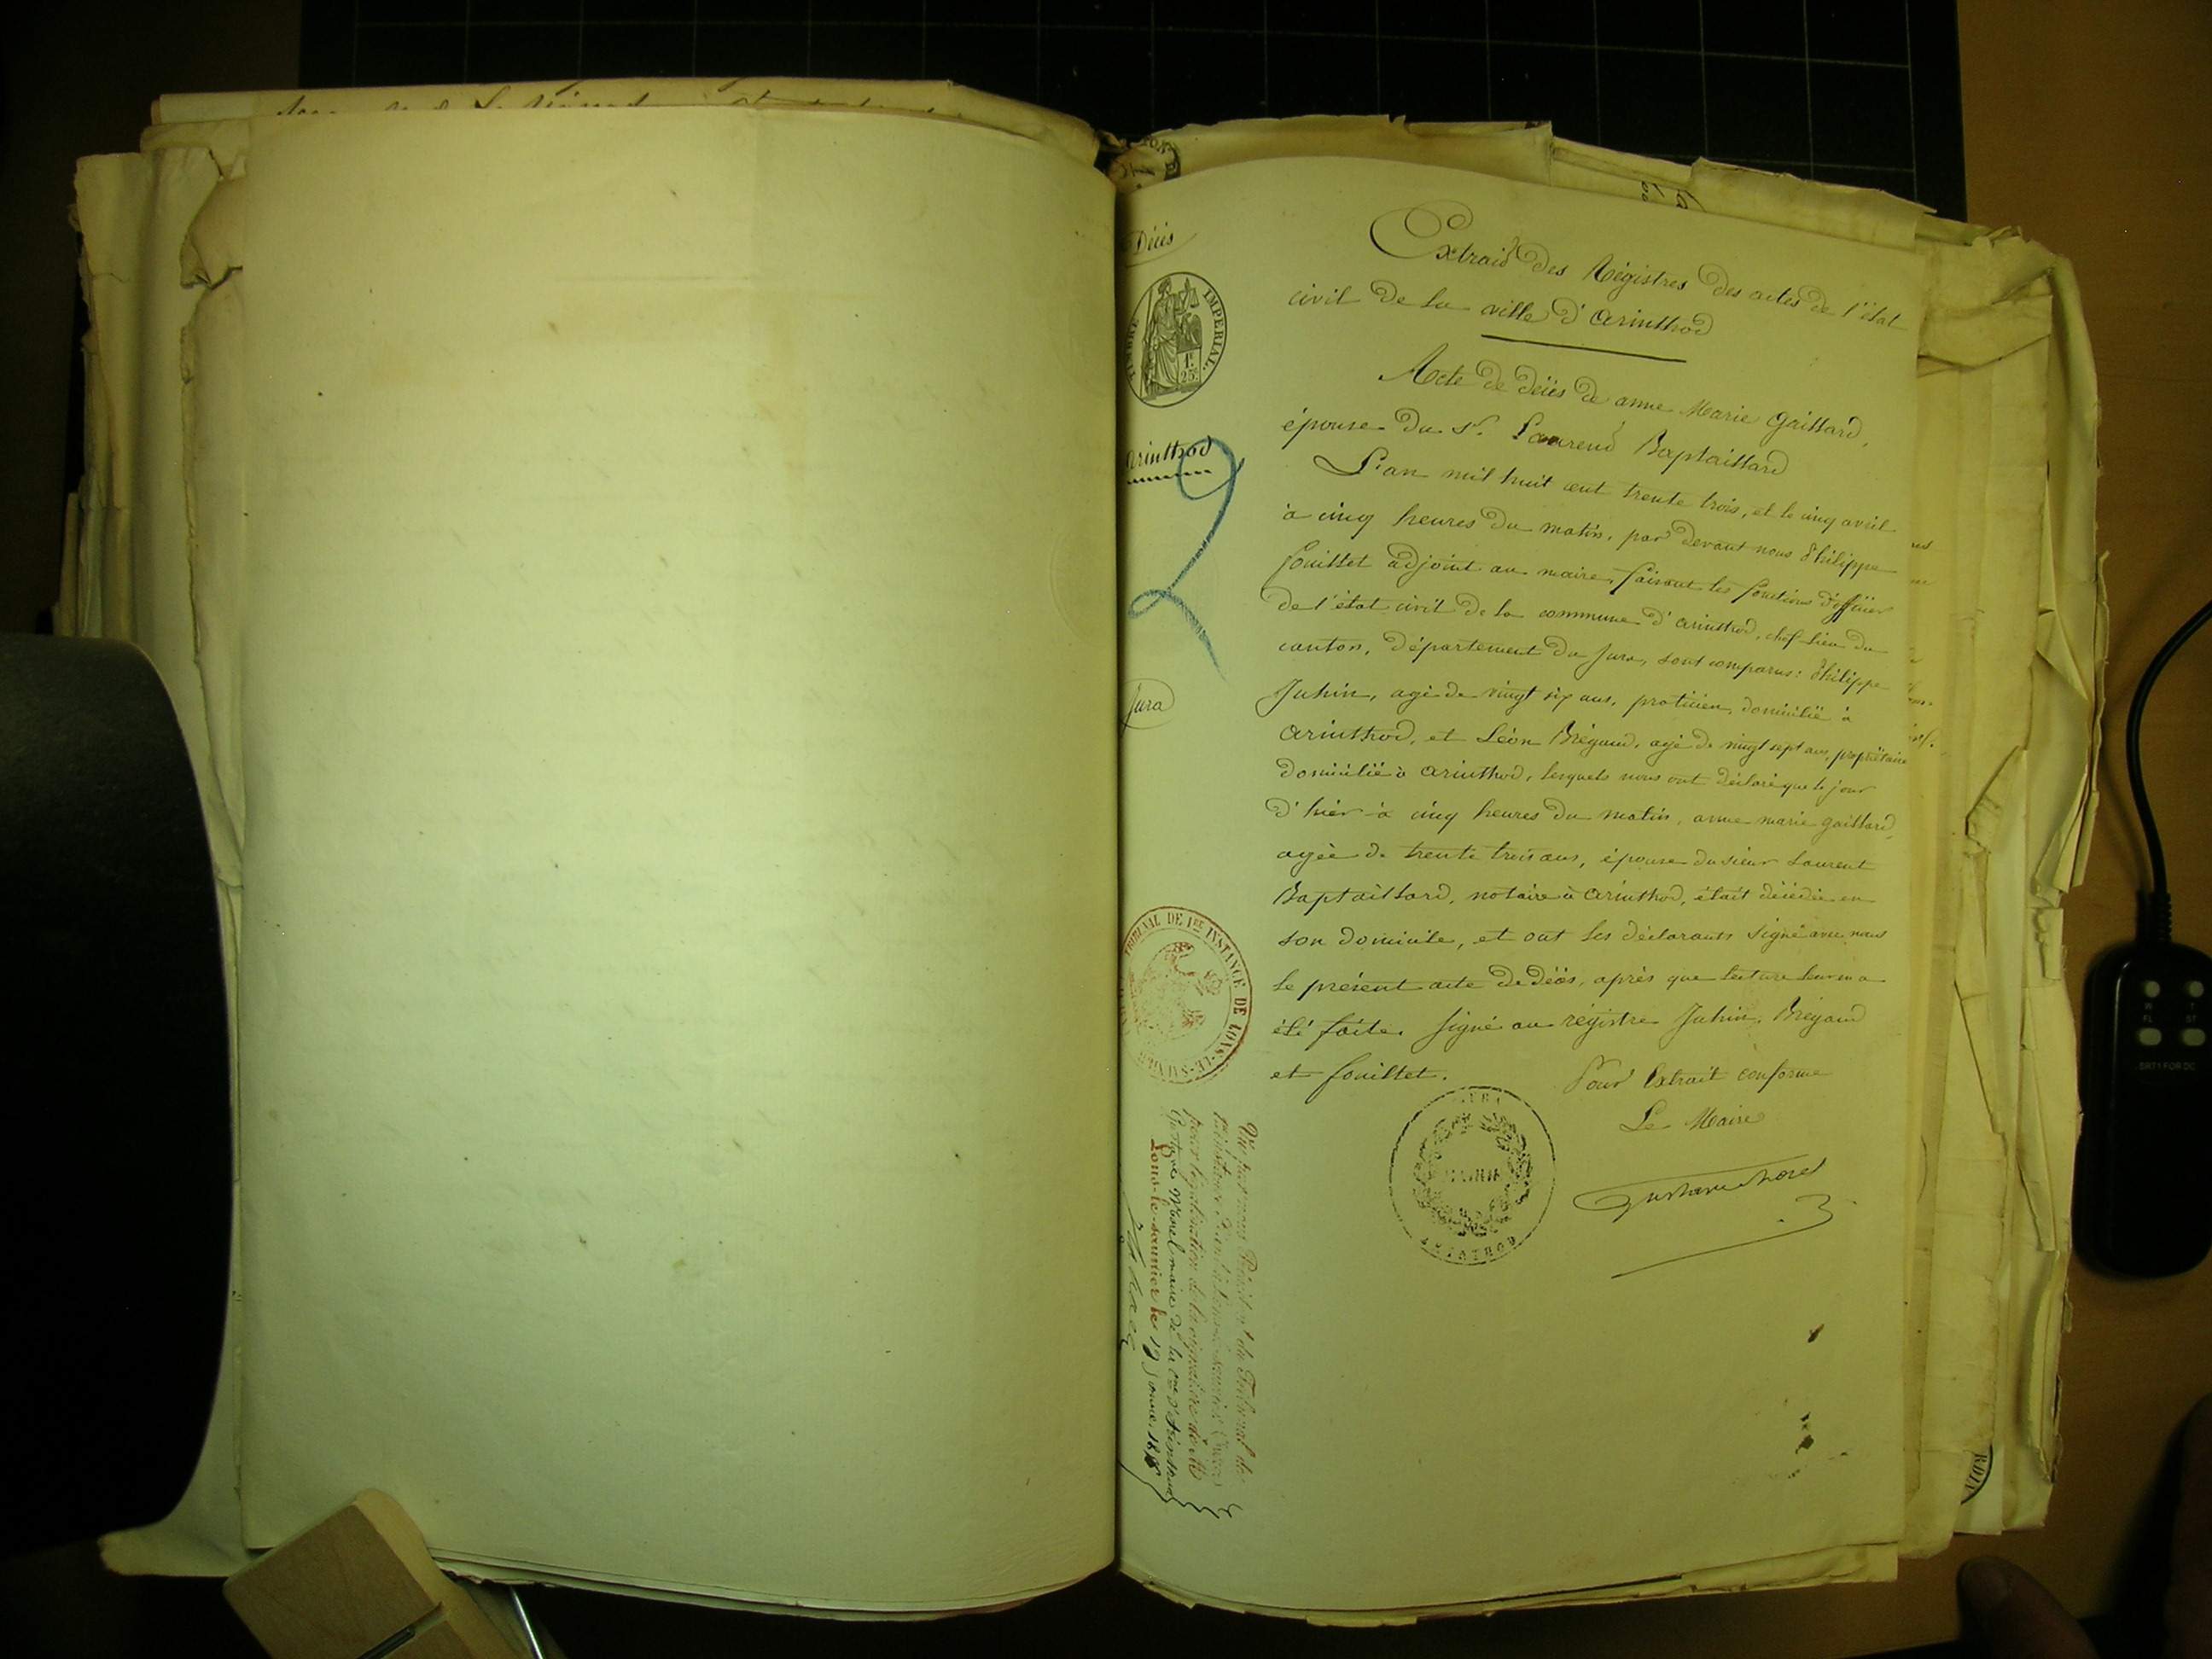 Décès
TIMBRE IMPERIAL
1F
25c
Arinthod
2
Jura
Extrait des Régistres des actes de l'état
civil de la ville d'Arinthod
Acte de décès de anne Marie Gaillard,
épouse du Sr. Laurend Baptaillard
L'an mil huit cent trente trois, et le cinq avril
à cinq heures du matin, par devant nous Philippe
Fouillet adjoint au maire, faisant les fonctions d'officier
de l'état civil de la commune d'Arinthod, chef lieu du
canton, département du Jura, sont comparus: Philippe
Juhin, agé de vingt six ans, praticien, domicilié à
Arinthod, et Léon Brégand, agé de vingt sept ans, propriétaire
domicilié à Arinthod, lesquels nous ont déclaré que le jour
d'hier à cinq heures du matin, anne marie gaillard,
agée de trente trois ans, épouse du sieur Laurent
Baptaillard, notaire à Arinthod, était décédée en
son domicile, et ont les déclarants signé avec nous
le présent acte de décès, après que lecture leur en a
été faite. Signé au régistre Juhin, Brégand
et fouillet.
Pour Extrait conforme
Le Maire
Gustave Morel
MAIRIE
ARINTHOD
JURA
TRIBUNAL DE 1RE INSTANCE DE LONS-LE-SAUNIER
Vu par nous Président du Tribunal de
pour légalisation de la signature de M
Gustave Morel maire de la Cne d'Arinthod
Lons-le-saunier le 19